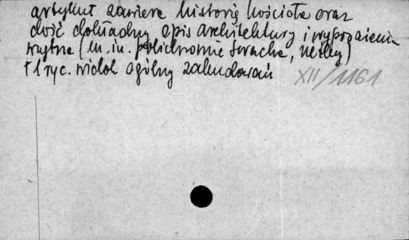 artykuł zawiera historię kościoła oraz
dość dokładny opis architektury i wyposażenia
wnętrza (m.in. polichromie Stracha, rzeźby)
+ 1 ryc. widok ogólny zabudowań
XII/1161